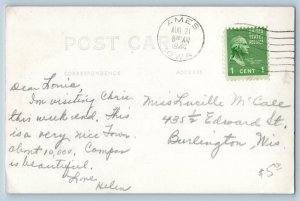 AMES
AUG 21
8 AM
1940
IOWA
POST CARD
UNITED STATES POSTAGE
1 CENT 1
CORRESPONDENCE
ADDRESS
Dear Lonia,
I'm visiting Chris.
this week end. This
is a very nice Town.
about 10,000. Campus
is beautiful.
Love
Helen
Miss Lucille McCall
435 Edward St.
Burlington, Wis.
$5